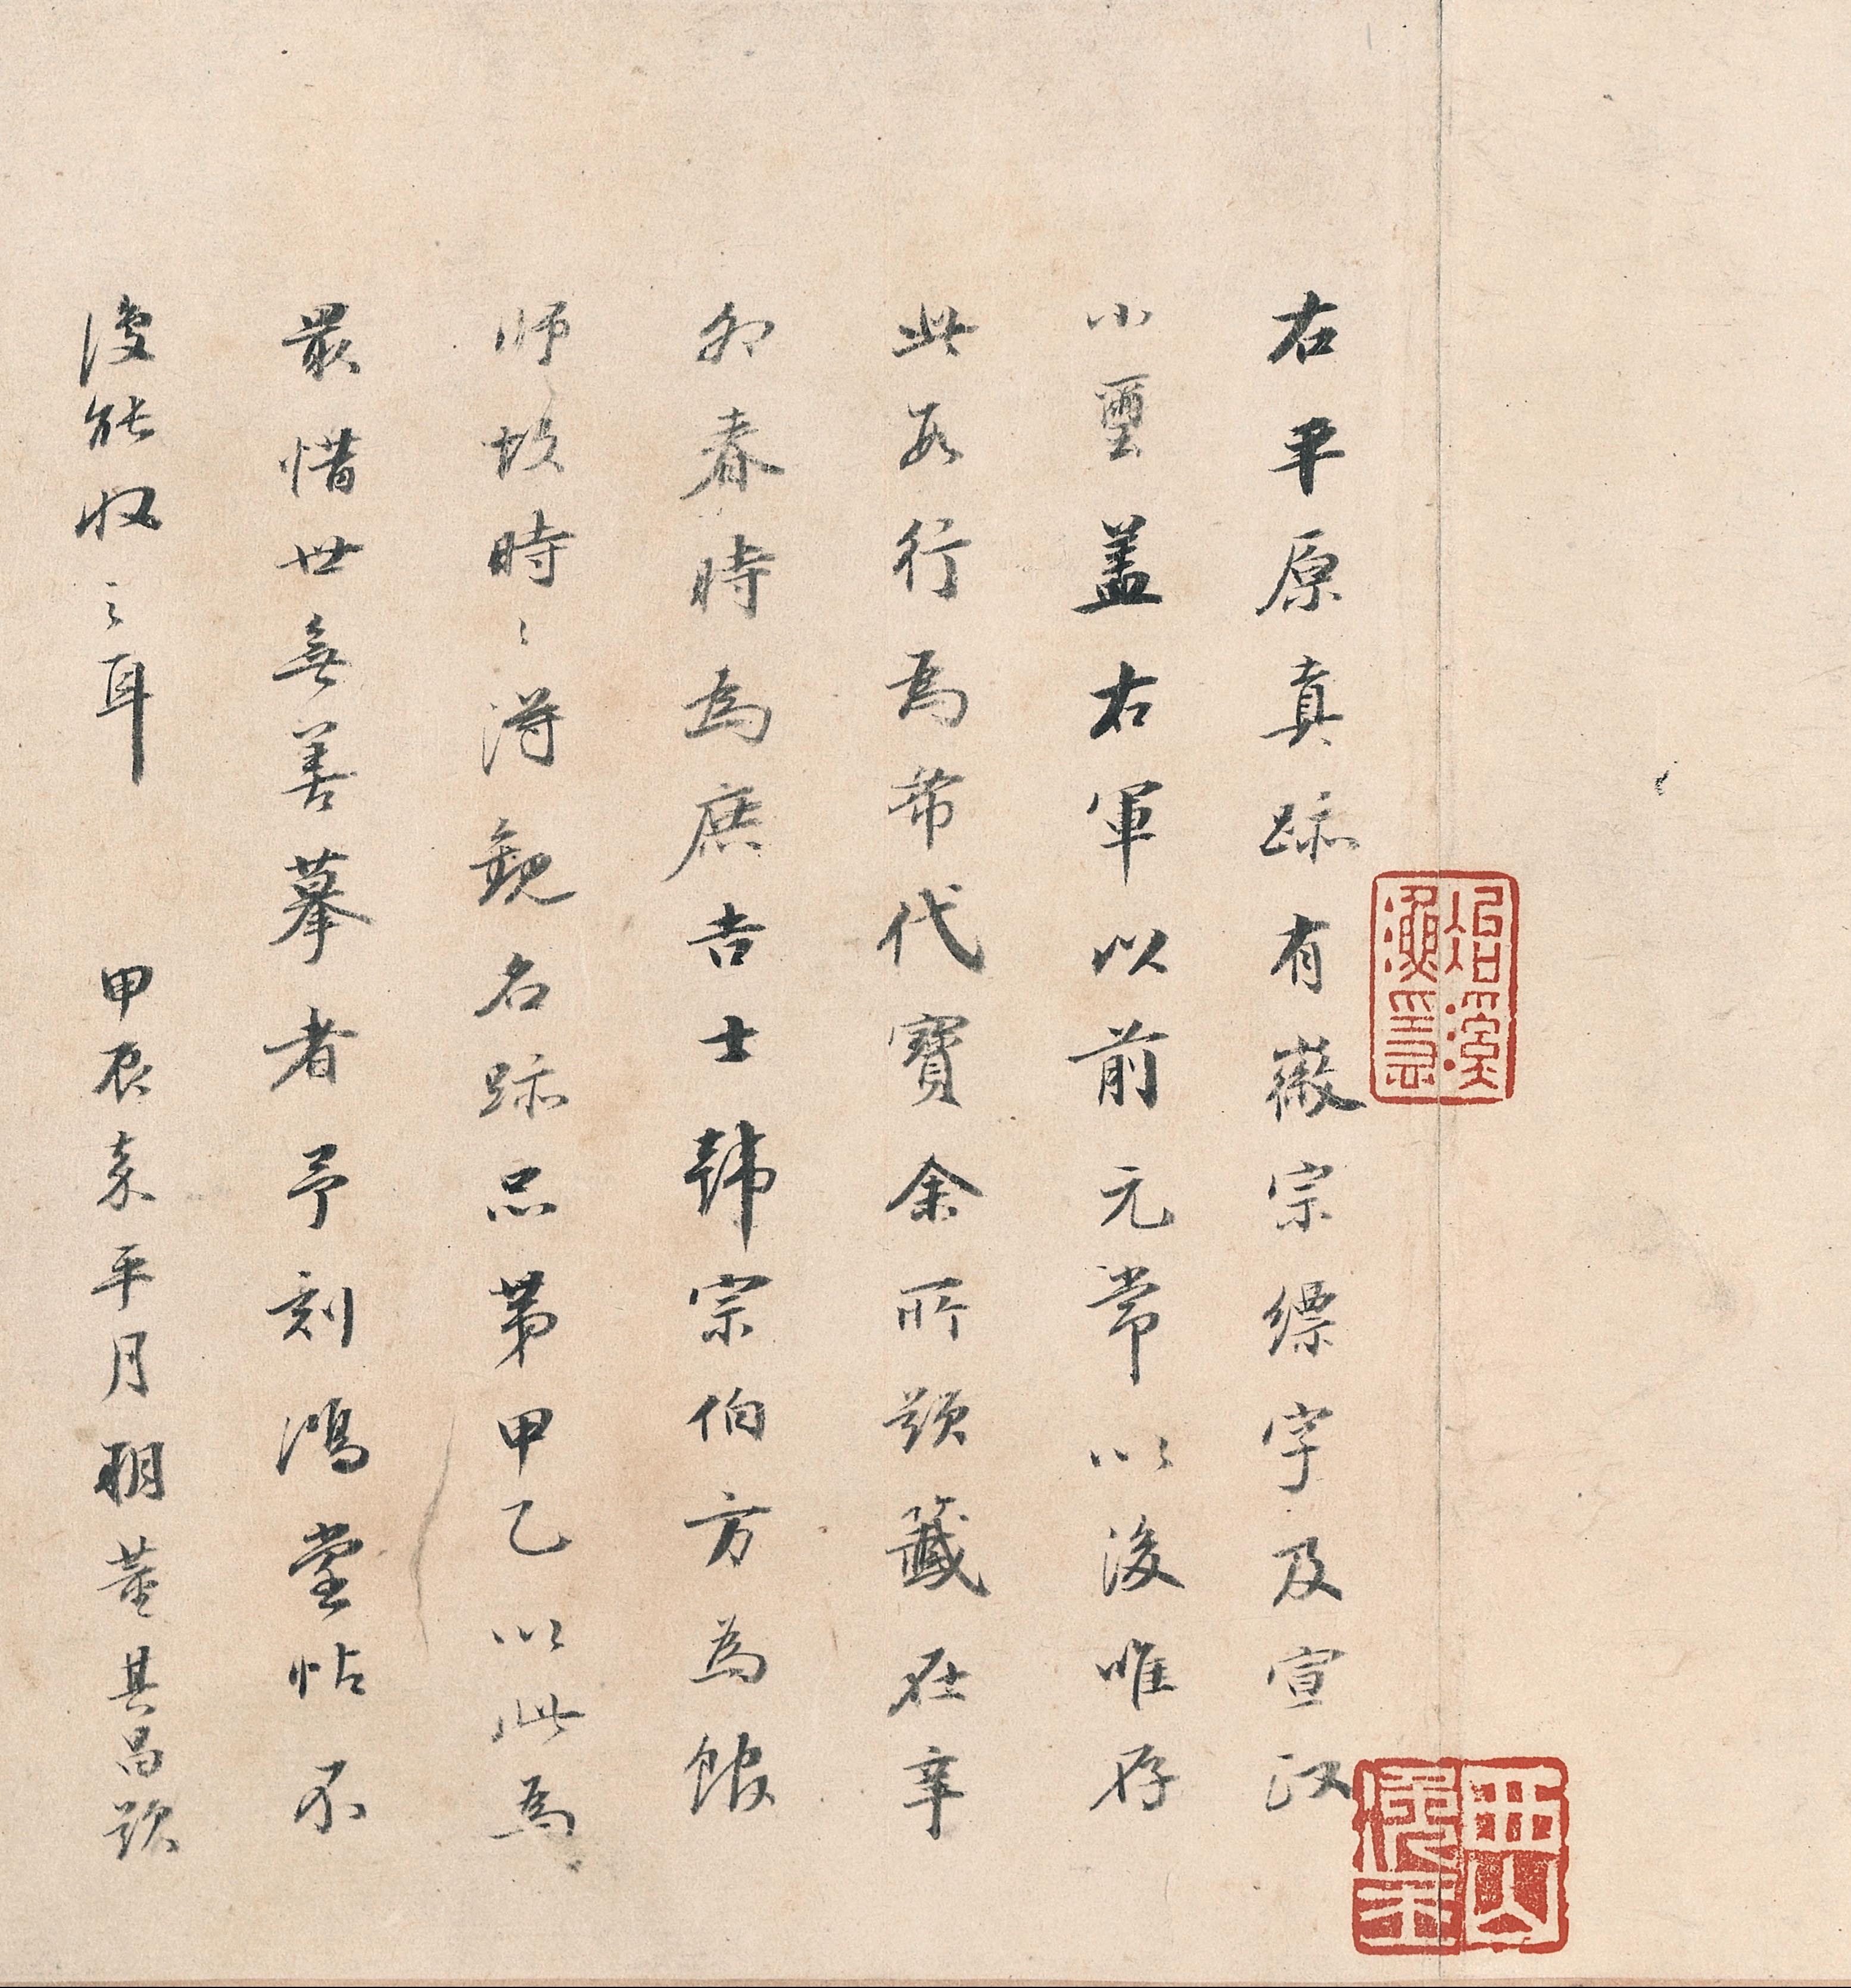 右平原真跡有徽宗縹字及宣政
小璽蓋右軍以前元常以後唯存
此數行為希代寶余所題籤在辛
卯春時為庶吉士韓宗伯方為館
師故時々得觀名跡品第甲乙以此為
最惜世無善摹者予刻鴻堂帖不
復能收之耳　甲辰嘉平月朔董其昌題